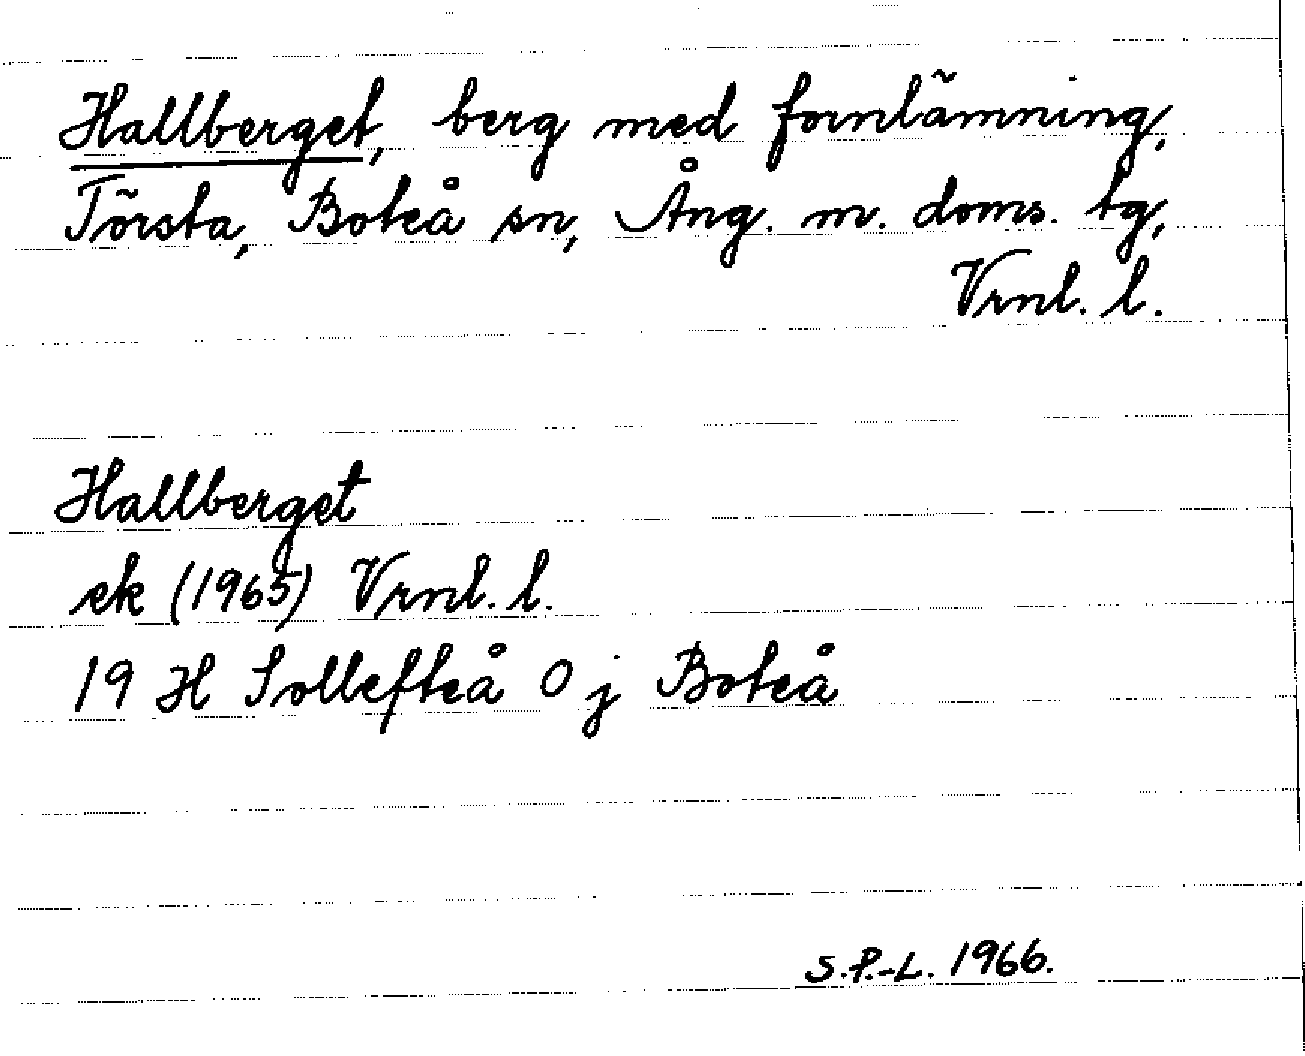 Hallberget, berg med fornlämning,
Törsta, Boteå sn, Ång. m. doms. tg,
Vrnl. l.
Hallberget
ek (1965) Vrnl. l.
19 H Sollefteå O j Boteå
S.P.-L. 1966.